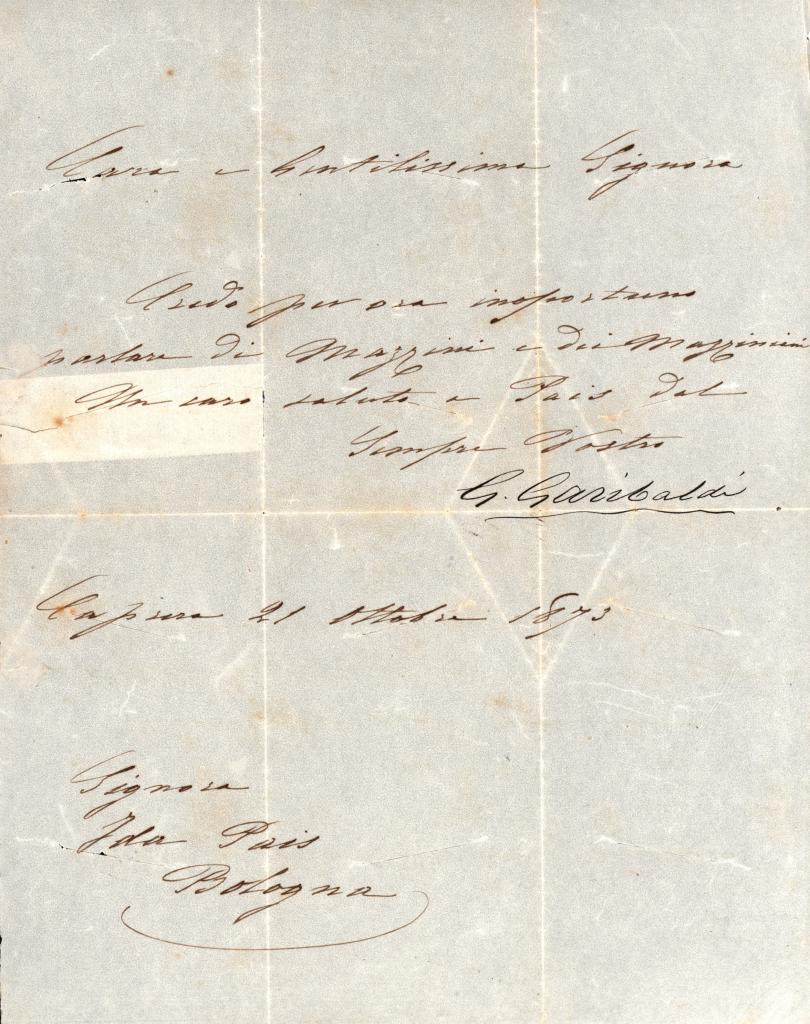 Cara e Gentilissima Signora
Credo per ora inopportuno
parlare di Mazzini e dei Mazziniani
Un caro saluto a Pais dal
Sempre Vostro
G. Garibaldi
Caprera 21 Ottobre 1873
Signora
Ida Pais
Bologna